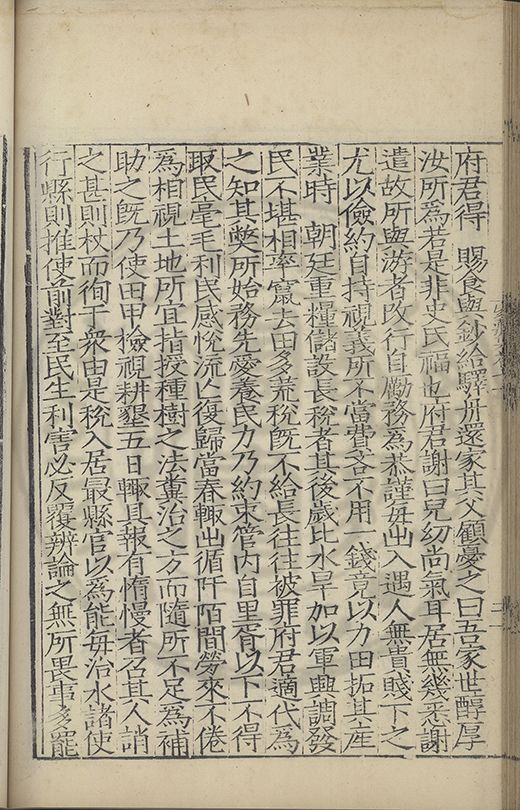 府君得 賜食與鈔給驛舟還家其父顧憂之曰吾家世醇厚
汝所爲若是非史氏福也府君謝曰兒幼尚氣耳居無幾悉謝
遣故所與游者改行自勵務爲恭謹每出入遇人無貴賤下之
尤以儉約自持視義所不當費吝不用一錢竟以力田拓其產
業時 朝廷重糧儲設長稅者其後歲比水旱加以軍興調發
民不堪相率竄去田多荒稅旣不給長往往被罪府君適代爲
之知其獘所始務先愛養民力乃約束管內自里胥以下不得
取民毫毛利民感悅流人復歸當春輙出循阡陌間勞來不倦
爲相視土地所宜指授種樹之法糞治之方而隨所不足爲補
助之旣乃使田甲檢視耕墾五日輙具報有惰慢者召其人誚
之甚則杖而徇于衆由是稅入居最縣官以爲能每治水諸使
行縣則推使前對至民生利害必反覆辨論之無所畏事多罷